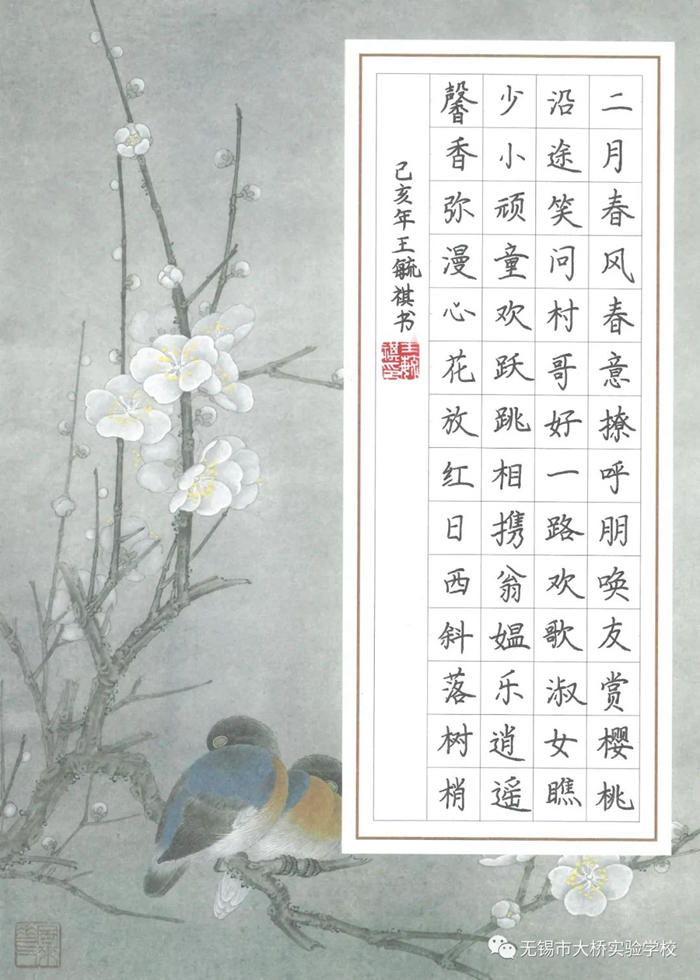 二月春风春意撩呼朋唤友赏樱桃
沿途笑问村哥好一路欢歌淑女瞧
少小顽童欢跃跳相携翁媪乐逍遥
馨香弥漫心花放红日西斜落树梢
己亥年王毓祺书
无锡市大桥实验学校